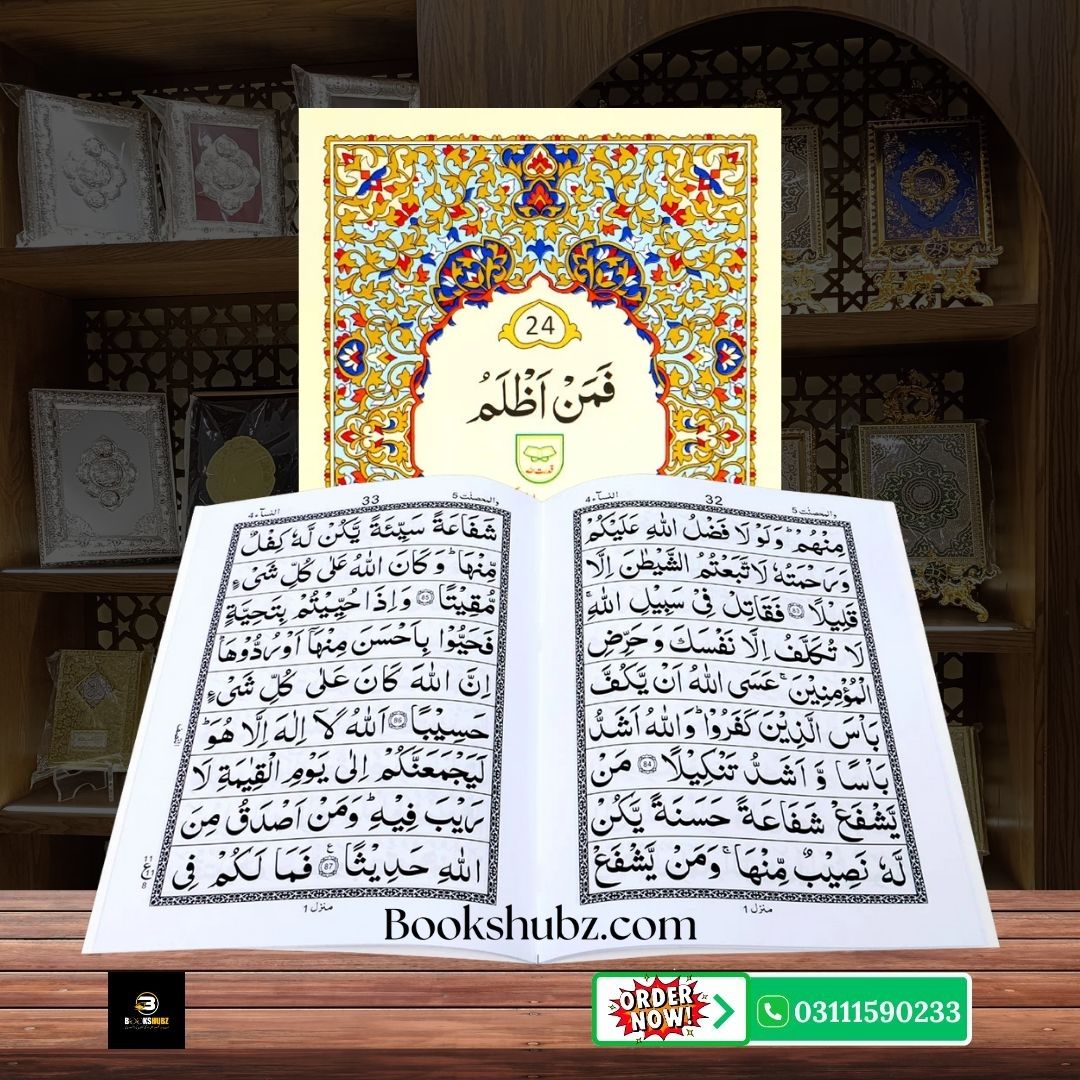 24
فَمَنْ اَظْلَمُ
قدرت اللہ
والمحصنٰت 5 32 النسآء 4
مِنْهُمْ ؕ وَلَوْ لَا فَضْلُ اللّٰهِ عَلَيْكُمْ
وَرَحْمَتُهٗ لَاتَّبَعْتُمُ الشَّيْطٰنَ اِلَّا
قَلِيْلًا 83 فَقَاتِلْ فِىْ سَبِيْلِ اللّٰهِ ۚ
لَا تُكَلَّفُ اِلَّا نَفْسَكَ وَ حَرِّضِ
الْمُؤْمِنِيْنَ ۚ عَسَى اللّٰهُ اَنْ يَّكُفَّ
بَاْسَ الَّذِيْنَ كَفَرُوْا ؕ وَاللّٰهُ اَشَدُّ
بَاْسًا وَّ اَشَدُّ تَنْكِيْلًا 84 مَنْ
يَّشْفَعْ شَفَاعَةً حَسَنَةً يَّكُنْ
لَّهٗ نَصِيْبٌ مِّنْهَا ۚ وَمَنْ يَّشْفَعْ
منزل 1
والمحصنٰت 5 33 النسآء 4
شَفَاعَةً سَيِّئَةً يَّكُنْ لَّهٗ كِفْلٌ
مِّنْهَا ؕ وَ كَانَ اللّٰهُ عَلٰى كُلِّ شَىْءٍ
مُّقِيْتًا 85 وَ اِذَا حُيِّيْتُمْ بِتَحِيَّةٍ
فَحَيُّوْا بِاَحْسَنَ مِنْهَاۤ اَوْ رُدُّوْهَا ؕ
اِنَّ اللّٰهَ كَانَ عَلٰى كُلِّ شَىْءٍ
حَسِيْبًا 86 اَللّٰهُ لَاۤ اِلٰهَ اِلَّا هُوَ ؕ
لَيَجْمَعَنَّكُمْ اِلٰى يَوْمِ الْقِيٰمَةِ لَا
رَيْبَ فِيْهِ ؕ وَمَنْ اَصْدَقُ مِنَ
اللّٰهِ حَدِيْثًا 87 فَمَا لَكُمْ فِى
منزل 1
Bookshubz.com
BOOKSHUBZ
ORDER
NOW!
03111590233